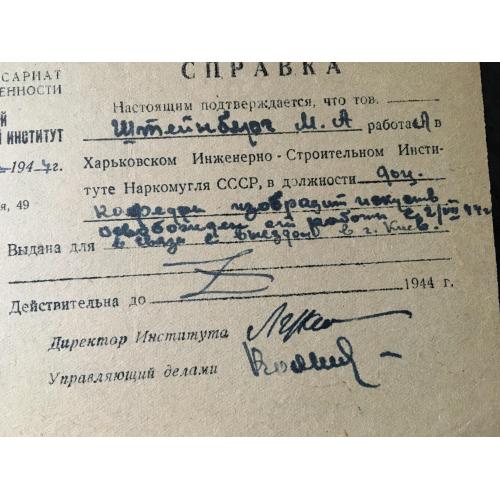 САРИАТ
ЕННОСТИ
ИЙ
Й ИНСТИТУТ
1947г.
я, 49
СПРАВКА
Настоящим подтверждается, что тов.
Штейнберг М. А работал в
Харьковском Инженерно-Строительном Инсти-
туте Наркомугля СССР, в должности доц.
кафедры изобразит искусств
освобожден от работы с 21/VII 44г
Выдана для в связи с выездом в г. Киев.
Действительна до 1944 г.
Директор Института
Управляющий делами